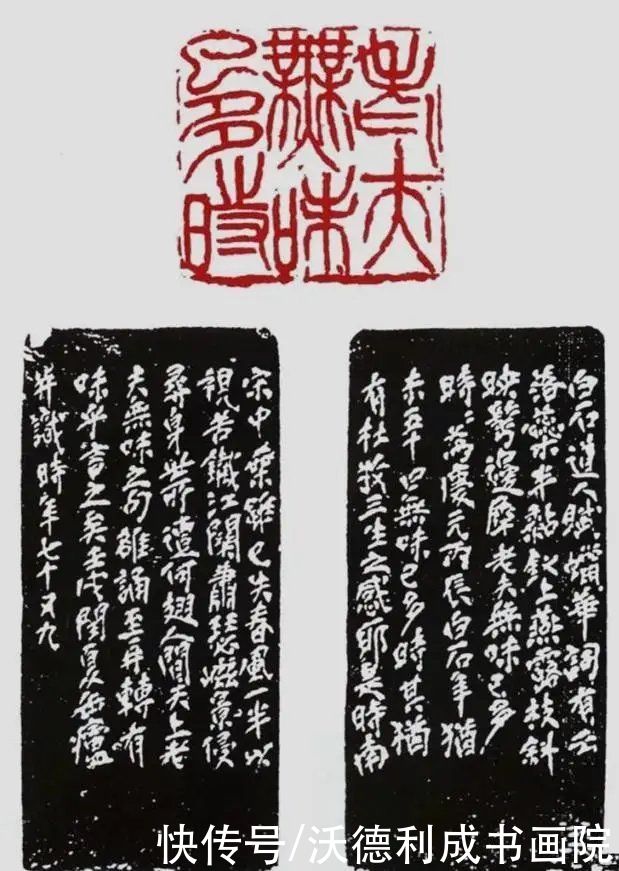 老夫
無味
已多時
白石道人賦蠟華詞有云
落蘂半黏釵上燕露枝斜
映鬢邊犀老夫無味已多
時時為慶元丙辰白石年猶
未五十曰無味已多時其猶
有杜牧三生之感耶是時南
宋中葉雖已失春風一半以
視苦鐵江關蕭瑟崦景侵
尋身世所遭何翅人間天上老
夫無味之句雖誦至再轉有
味乎言之矣壬戌閏夏缶廬
并識時年七十又九
快传号/沃德利成书画院